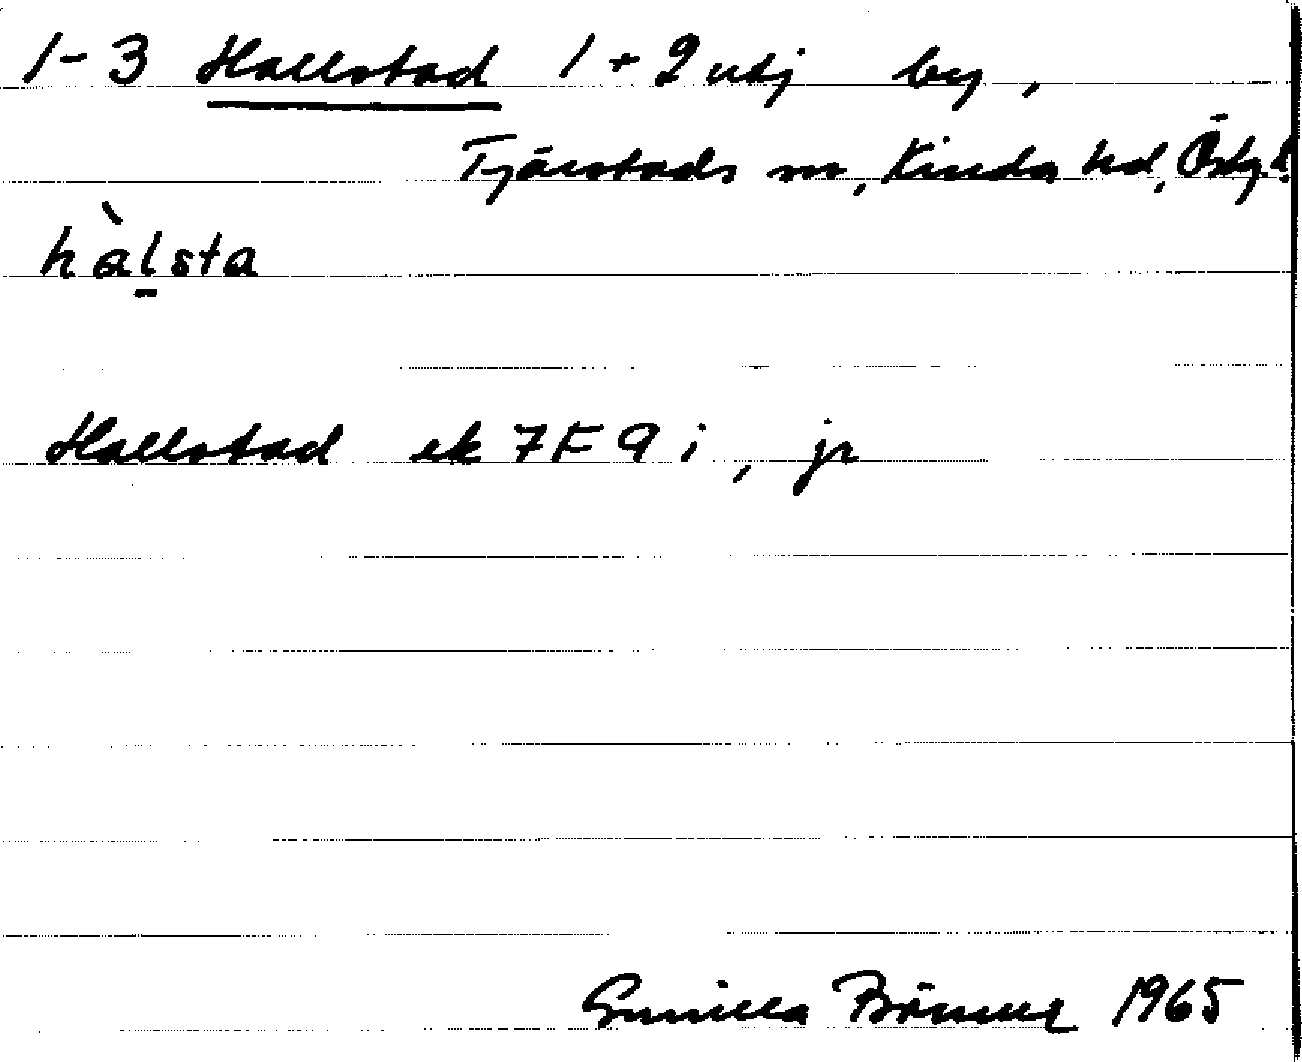 1-3 Hallstad 1 + 2 utj by,
Tjärstads sn, Kinda hd, Östg.
hàlsta
Hallstad ek 7F 9 i, jr
Gunilla 1965